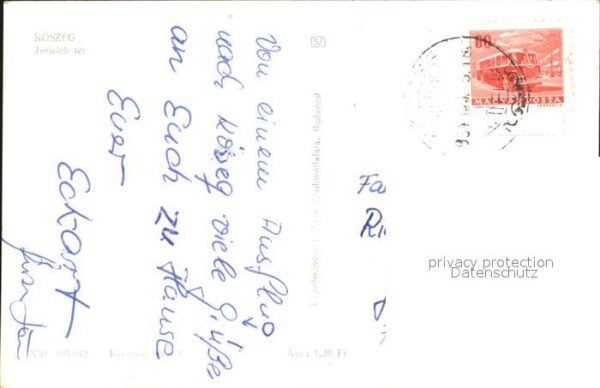 KŐSZEG
Jurisich tér
Von einem Ausflug
nach Köszeg viele Grüße
an Euch zu Hause
Euer
Eckart
60
MAGYAR POSTA
Fa
Ri
privacy protection
Datenschutz
Budapest
Ára: 1,20 Ft